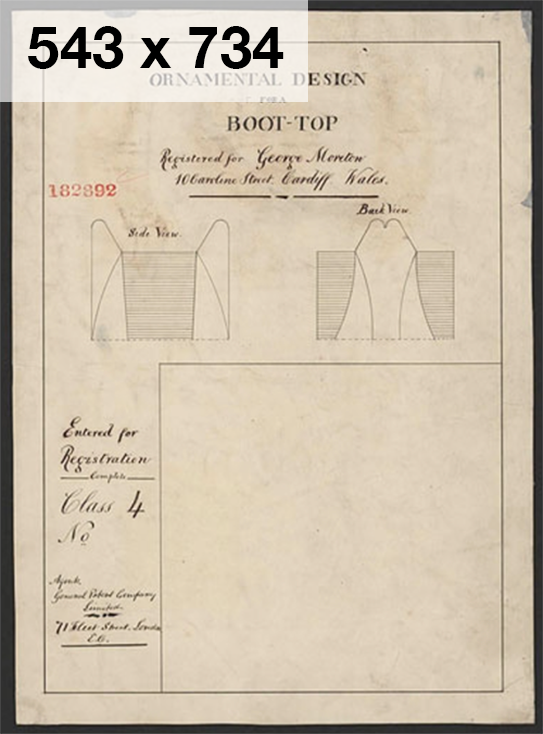 543 x 734
ORNAMENTAL DESIGN
FOR A
BOOT-TOP
Registered for George Moreton
10 Caroline Street. Cardiff Wales.
182892
Side View.
Back View.
Entered for
Registration
Complete
Class 4
No
Agents
General Patent Company
Limited.
71 Fleet Street. London
E.C.